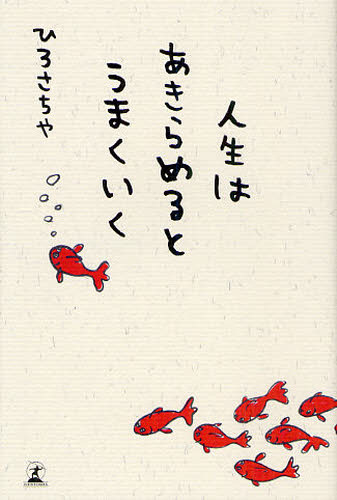 人生は
あきらめると
うまくいく
ひろさちや